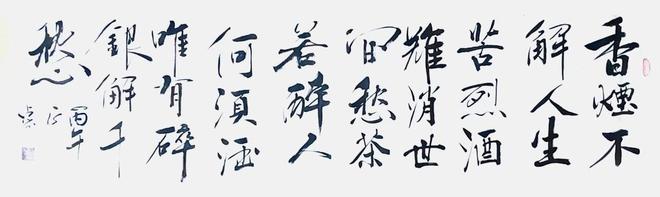 香煙不
解人生
苦烈酒
難消世
间愁茶
若醉人
何須酒
唯有碎
銀解千
愁
丙午